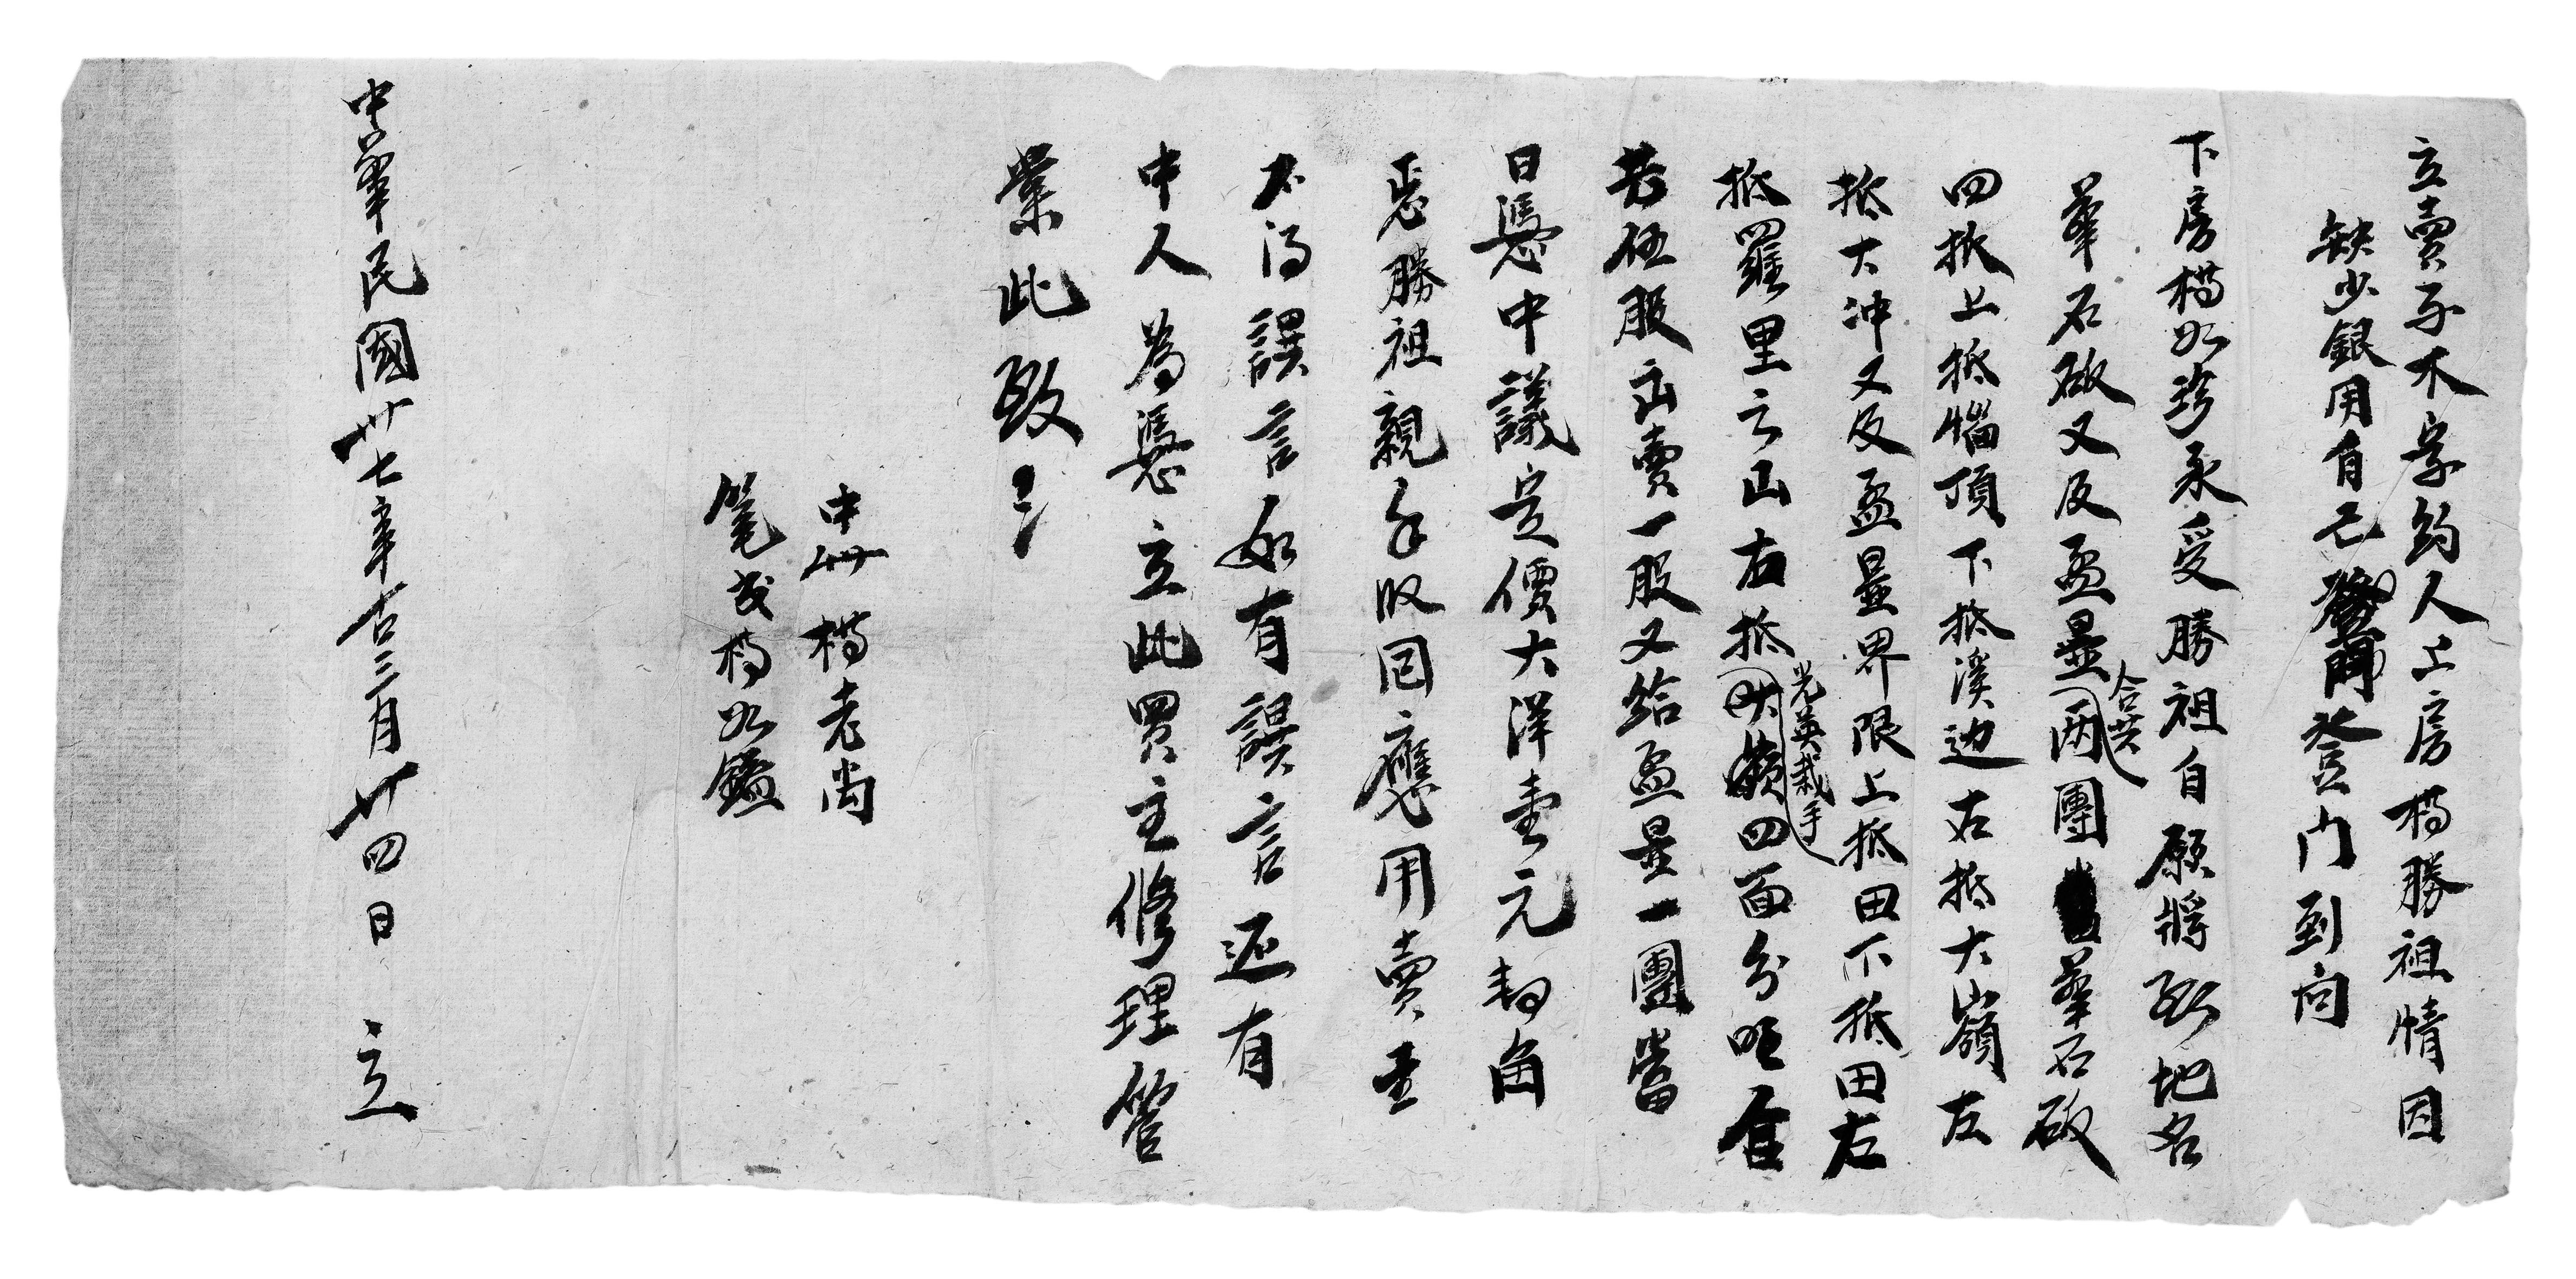 立賣不木字約人上房楊勝祖情因
缺少銀用自己登门到向
下房楊必珍承受勝祖自願將致地名
華石砍又及盃量合共两團華石砍
四抵上抵惱頂下抵溪边右抵大嶺左
抵大冲又及盃量界限上抵田下抵田右
抵羅里之山右抵光英栽手四面分明自
共伍股出賣一股又給盃量一團當
日憑中議定價大洋壹元 角
勝祖親手收囘應用賣主
不得誤言如有誤言還有
中人為憑立此買主修理管
業此致
中 楊老尚
笔 楊必鑑
中華民國廿七年古三月廿四日 立